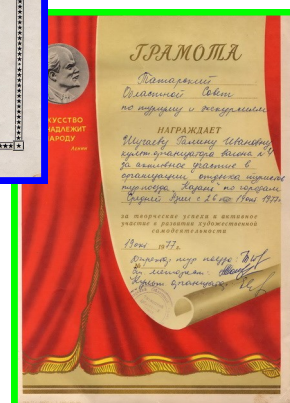 ГРАМОТА
Татарский
Областной Совет
по туризму и экскурсиям
НАГРАЖДАЕТ
Галину Ивановну
культорганизатора вагона №4
за активное участие в
организации отдыха туристов
по городам
Средней Азии с 26 по 1977г.
за творческие успехи и активное
участие в развитии художественной
самодеятельности
1977.
Директор тур поезда
Культорганизатор
ИСКУССТВО
ПРИНАДЛЕЖИТ
НАРОДУ
Ленин